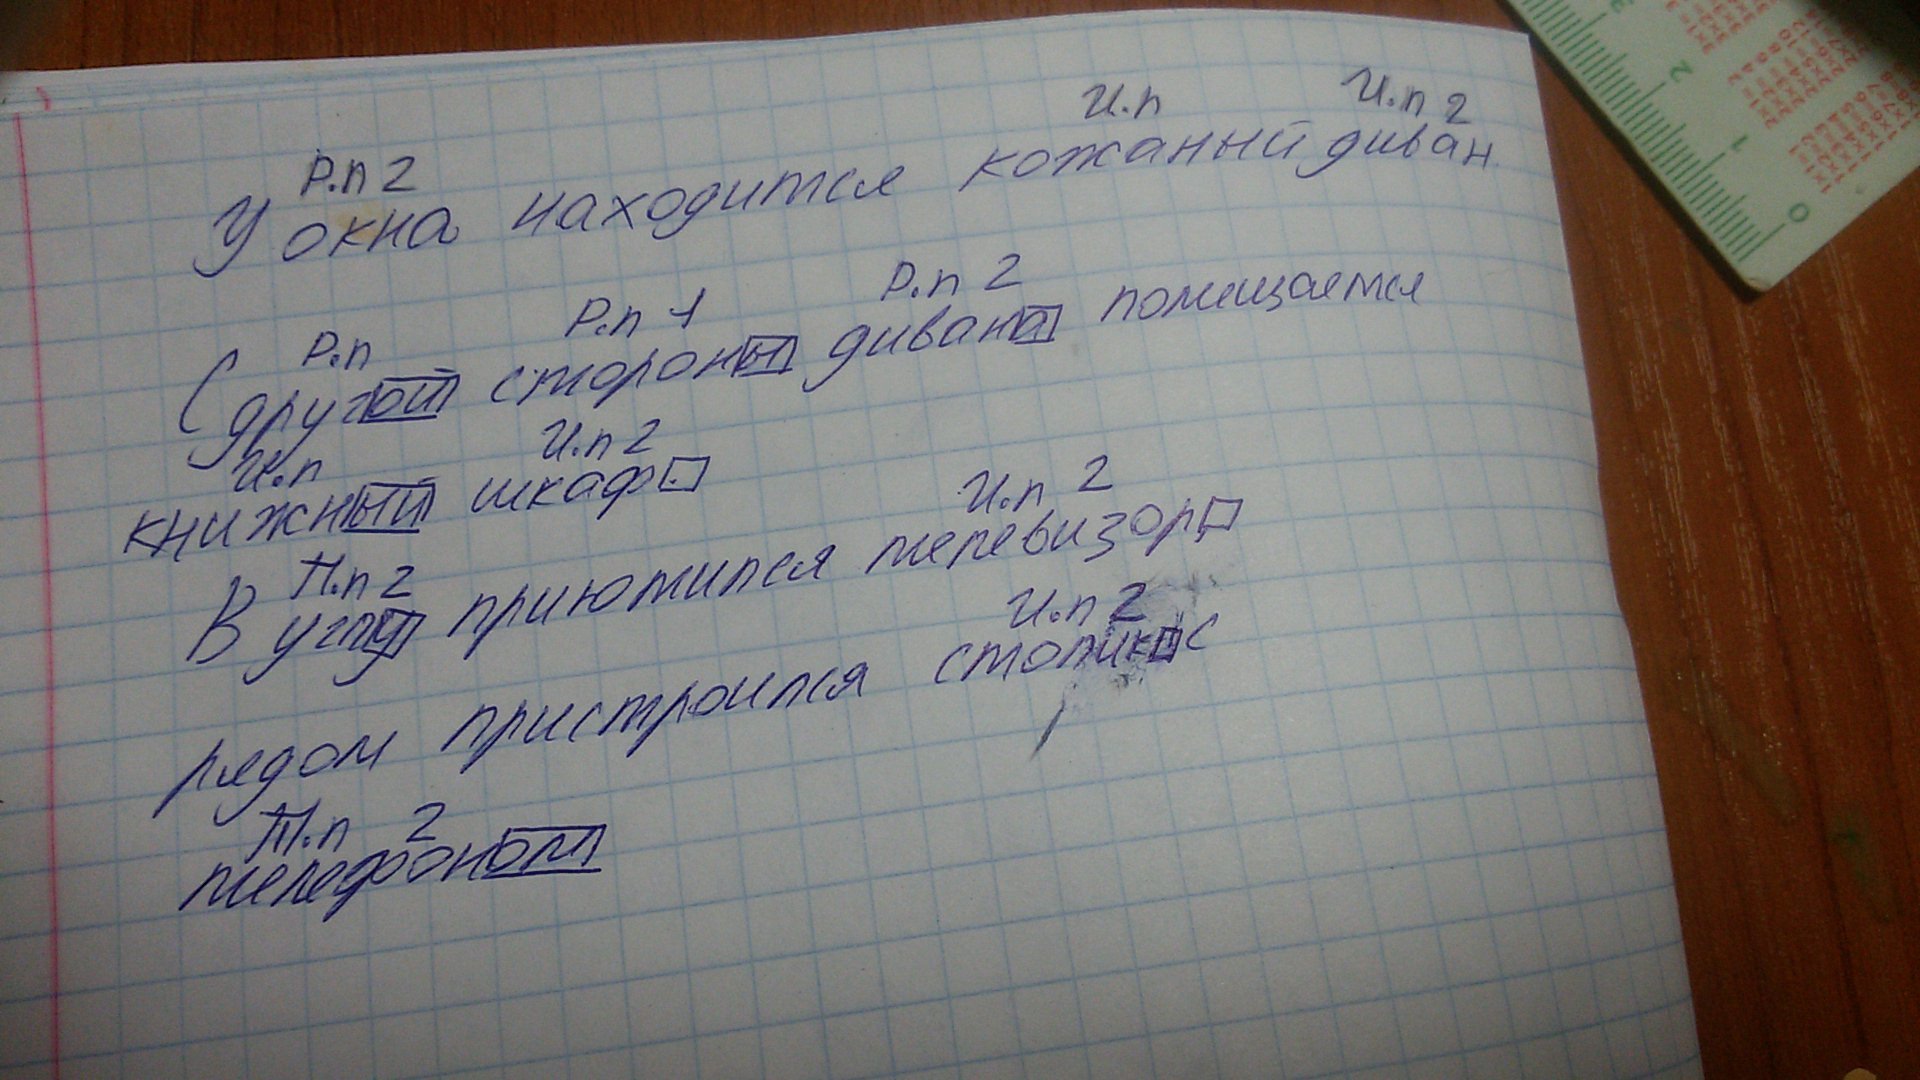 И.п И.п 2
Р.п 2
У окна находится кожаный диван
Р.п Р.п 1 Р.п 2
С другой стороны дивана помещается
И.п И.п 2
книжный шкаф.
П.п 2 И.п 2
В углу приютился телевизор,
И.п 2
рядом пристроился столик с
Т.п 2
телефоном
2
1
0